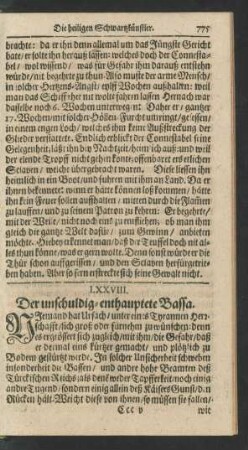 Die heiligen Schwartzkünstler. 775
brachte: da er ihn denn allemal um das Jüngste Gericht
bate / er solte ihn heraus lassen: welches doch der Connestabel /
wol wissend / was für Gefahr ihm daraus entstehen
würde / nit begehrte zu thun. Also muste der arme Mensch /
in solcher Hertzens-Angst / Wochen aushalten: weil
man das Schiff eher nit wolte fahren lassen
dasselbe noch 6. Wochen unterweg ist. Daher er / gantzer
17. Wochen / mit solcher Höllen-Furcht umringt / gesessen /
in einem engen Loch / welches ihm keine Ausstreckung der
Glieder verstattete. Endlich erblickt der Connestabel seine
Gelegenheit / läßt ihn bey der Nachtzeit /
der elende Tropff nicht gehen konte / offenbaret es etlichen
Sclaven / welche übergebracht waren. Diese liessen ihn
heimlich in ein Boot / und fuhren mit ihm an Land. Da er
ihnen bekennete: wenn er hätte können durchkommen / hätte
ihn kein Feuer sollen aufhalten / mitten durch loß zu
gehen / und zu seinem Patron zu kehren: Er begehrete /
mit der Weise / nicht noch eins zu entfliehen / ob man ihm
gleich die gantze Welt dafür / zum Gewinn / anbieten
möchte. Hiebey erkennet man / daß die Teuffel doch nit alles
thun könne / was er gern wolte. Denn sonst würde er die
Thür schon aufgerissen / und den Sclaven herfürgetrieben
haben. Aber so fern erstreckt sich seine Gewalt nicht.
LXXVIII.
Der unschuldig-enthauptete Bassa.
Niemand hat Ursach / unter eines Tyrannen Herrschafft /
sich groß oder fürnehm zu wünschen: denn
es ergrössert sich zugleich / mit ihm / die Gefahr / daß
er dermal eins kürtzer gemacht / und plötzlich zu
Boden gestürtzt werde. In solcher Unsicherheit schweben
insonderheit die Bassen / und andre hohe Beamten deß
Türckischen Reichs; als denen weder Tapfferkeit noch einige
andre Tugend / sondern einig allein deß Käisers Gunst / den
Rücken hält. Weicht diese von ihnen / so müssen sie fallen /
Ccc v wie